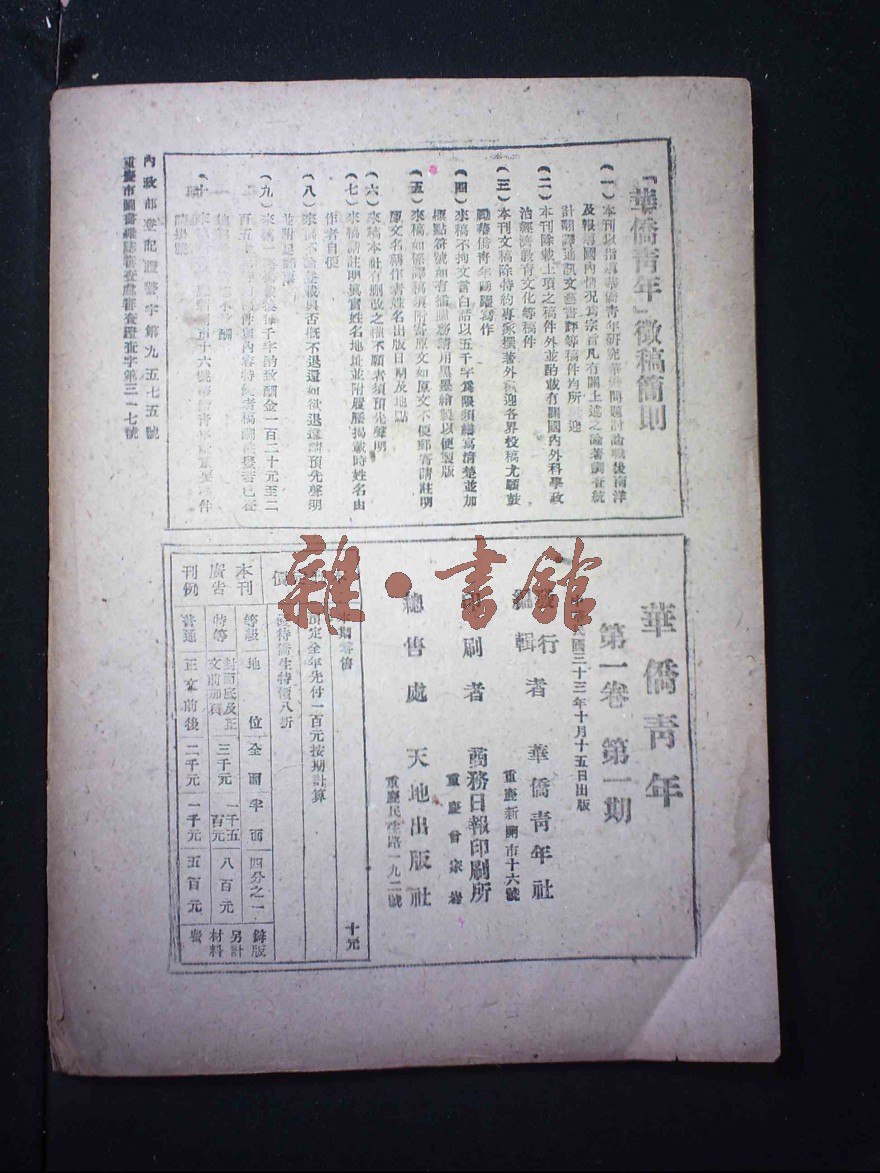 「華僑青年」徵稿簡則
（一）本刊以指導華僑青年研究華僑問題討論戰後南洋
及報導國內情況為宗旨凡有關上述之論著調查統
計翻譯通訊文藝書評等稿件均所歡迎
（二）本刊除載上項之稿件外並酌載有關國內外科學政
治經濟教育文化等稿件
（三）本刊文稿除特約專家撰著外歡迎各界投稿尤願鼓
勵華僑青年踴躍寫作
（四）來稿不拘文言白話以五千字為限須繕寫清楚並加
標點符號如有插圖務請用黑墨繪製以便製版
（五）來稿如係譯稿須附寄原文如原文不便郵寄請註明
原文名稱作者姓名出版日期及地點
（六）來稿本社有刪改之權不願者須預先聲明
（七）來稿請註明真實姓名地址並附履歷揭載時姓名由
作者自便
（八）來稿不論登載與否概不退還如欲退還請預先聲明
並附足郵票
（九）來稿一經登載後每千字酌致酬金一百二十元至二
百五十元
（十）
內政部登記證警字第九五七五號
重慶市圖書雜誌審查處審查證查字第三一七號
華僑青年
第一卷 第一期
民國三十三年十月十五日出版
發行
編輯
者 華僑青年社
重慶新開市十六號
印刷者 商務日報印刷所
重慶曾家岩
總售處 天地出版社
重慶民生路一九二號
本期零售 十元
預定全年先付一百元按期計算
優待僑生特價八折
本刊廣告刊例
等級 地位 全面 半面 四分之一
特等 封面底及正文前加頁 三千元 一千五百元 八百元
普通 正文前後 二千元 一千元 五百元
鋅版材料另計
雜·書館